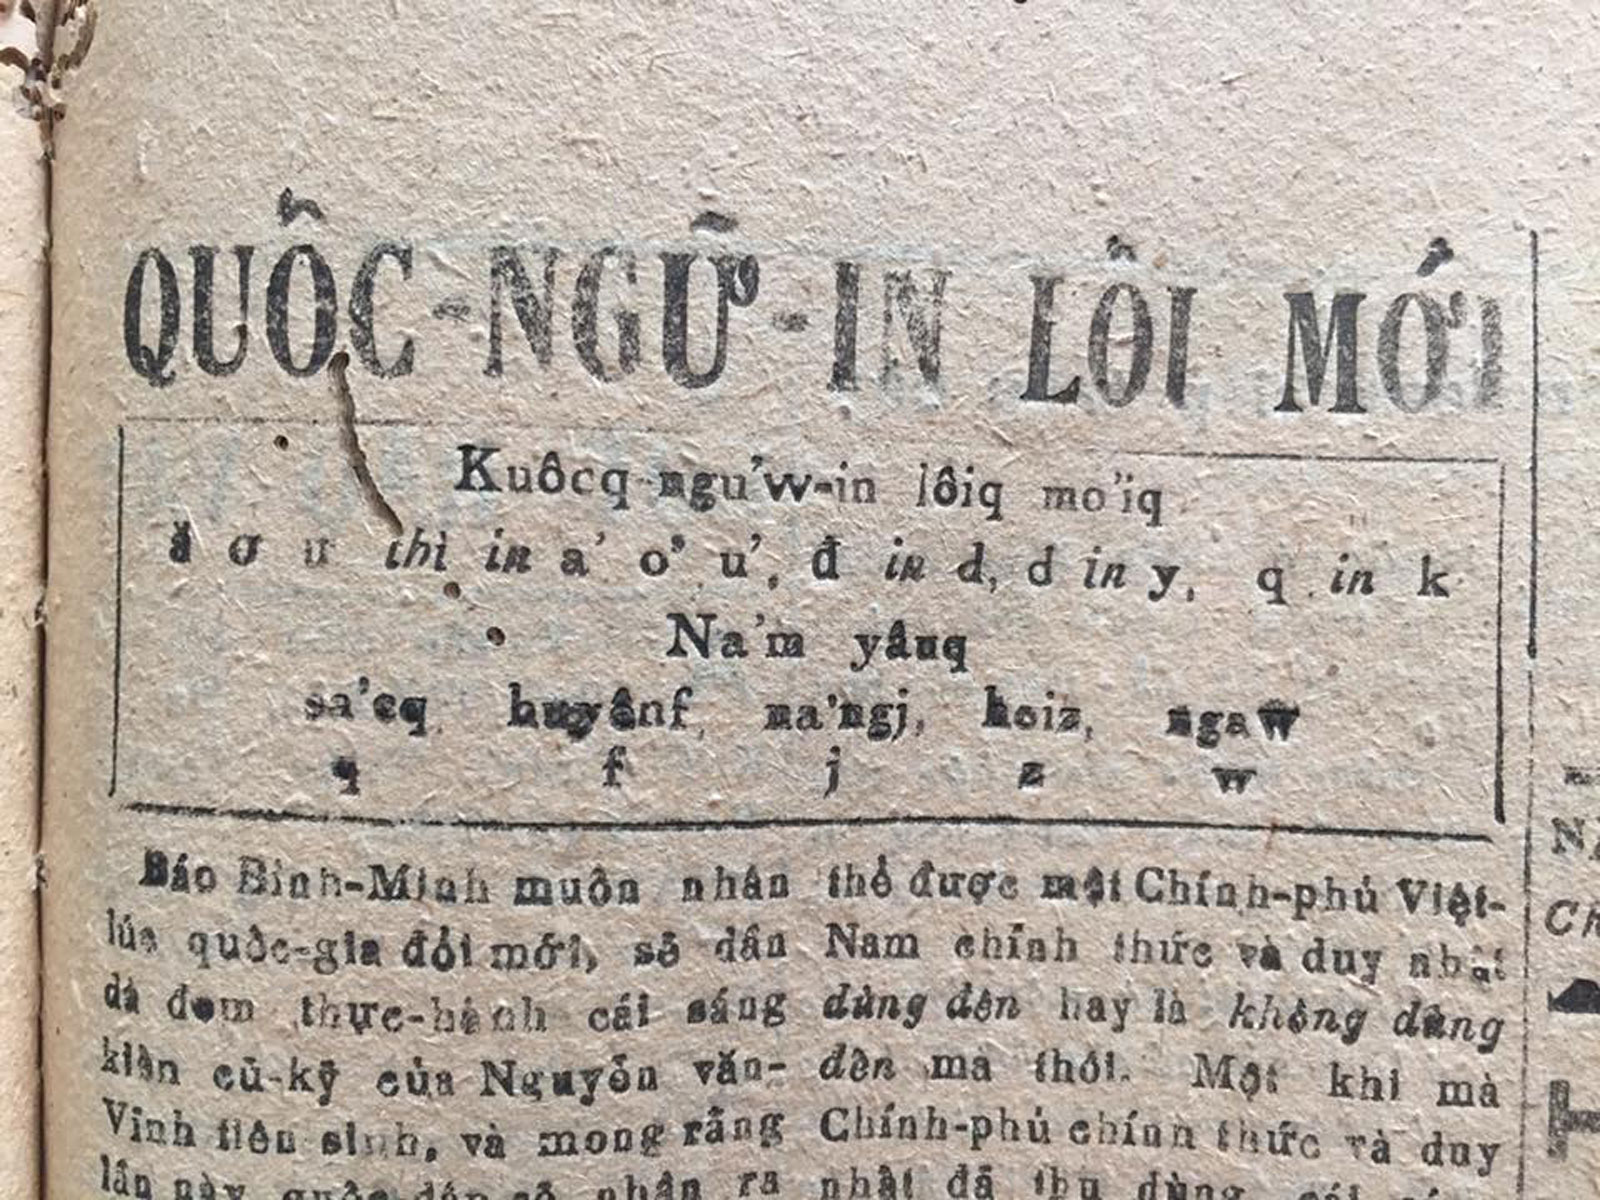 QUỐC-NGỮ-IN LỐI MỚI
Kuôcq ngu'w-in lôiq mo'iq
ă ơ ư thì in a' o' u', đ in d, d in y, q in k
Na'm yâuq
sa'cq huyênf, na'ngj, hoiz, ngaw
q f j z w
Báo Bình-Minh muốn nhân
lúc quốc-gia đổi mới, sẽ dần
dà đem thực-hành cái sáng
kiến cũ-kỹ của Nguyễn văn-
Vinh tiên sinh, và mong rằng
lần này quốc-dân sẽ nhận ra
thể được một Chính-phủ Việt-
Nam chính thức và duy nhất
dùng đến hay là không dùng
đến mà thôi. Một khi mà
Chính-phủ chính thức và duy
nhất đã thu dùng cái